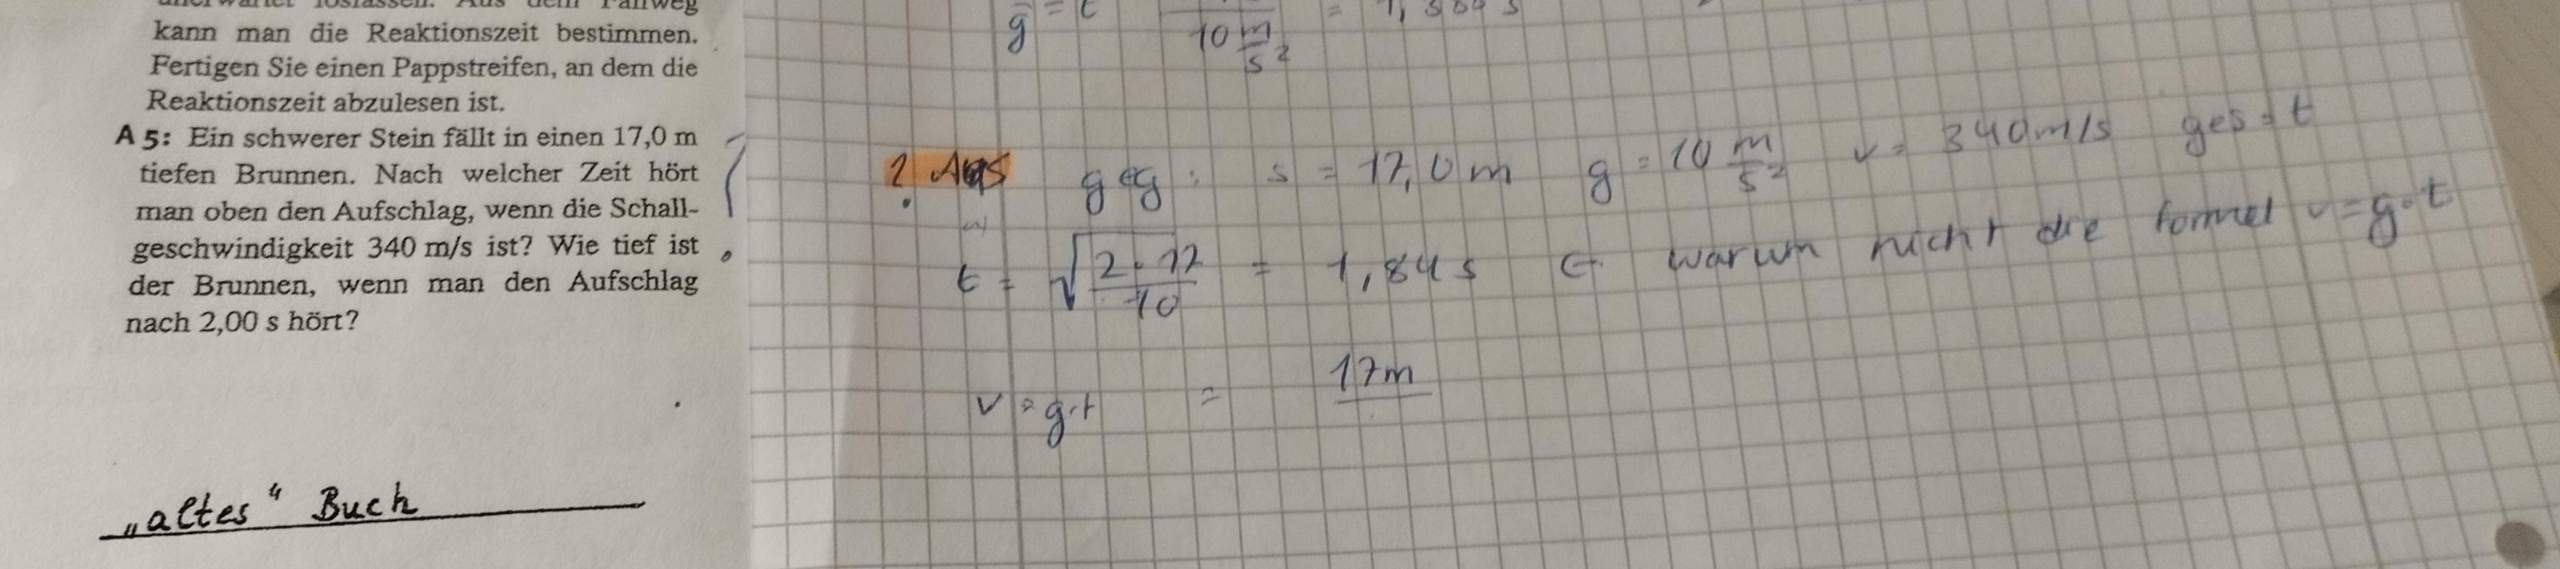 kann man die Reaktionszeit bestimmen.
Fertigen Sie einen Pappstreifen, an dem die
Reaktionszeit abzulesen ist.
A 5: Ein schwerer Stein fällt in einen 17,0 m
tiefen Brunnen. Nach welcher Zeit hört
man oben den Aufschlag, wenn die Schall-
geschwindigkeit 340 m/s ist? Wie tief ist
der Brunnen, wenn man den Aufschlag
nach 2,00 s hört?
„altes“ Buch
g = t
10 m/s²
? A5 geg: s = 17,0 m g = 10 m/s² v = 340 m/s ges = t
t = √(2·17/10) = 1,84 s ← warum nicht die formel v = g·t
v = g·t = 17m